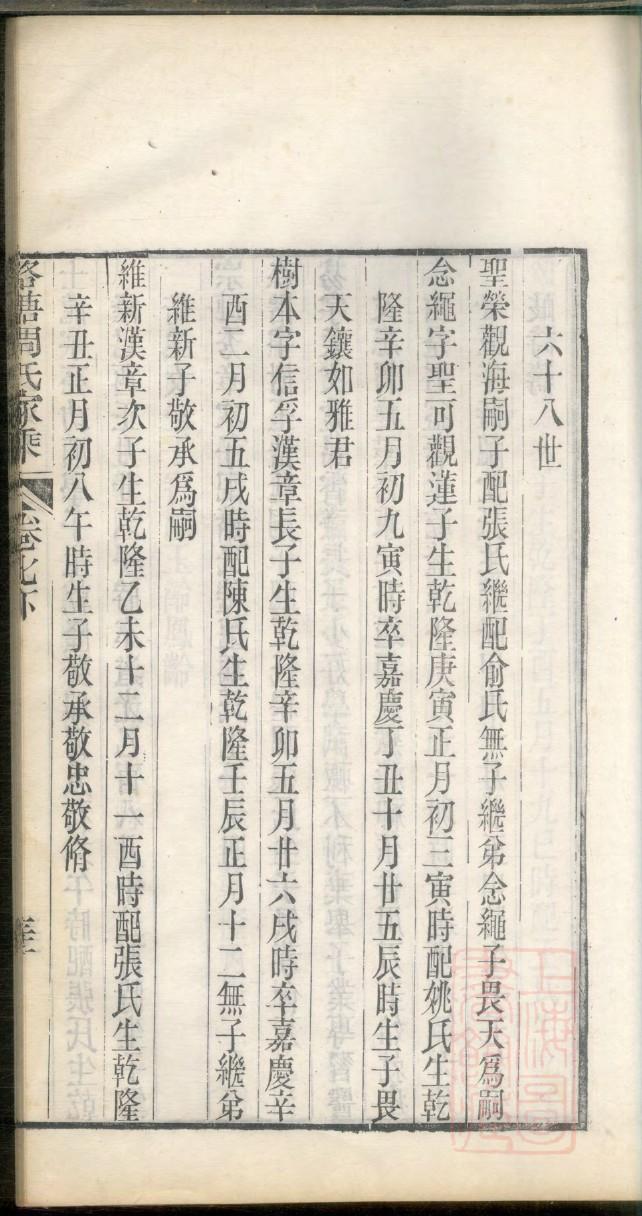 六十八世
聖榮觀海嗣子配張氏繼配俞氏無子繼弟念繩子畏天爲嗣
念繩字聖可觀蓮子生乾隆庚寅正月初三寅時配姚氏生乾
隆辛卯五月初九寅時卒嘉慶丁丑十月廿五辰時生子畏
天鑲如雅君
樹本字信孚漢章長子生乾隆辛卯五月廿六戌時卒嘉慶辛
酉二月初五戌時配陳氏生乾隆壬辰正月十二無子繼弟
維新子敬承爲嗣
維新漢章次子生乾隆乙未十二月十一酉時配張氏生乾隆
辛丑正月初八午時生子敬承敬忠敬脩
塘周氏家乘
卷
上海圖書館藏